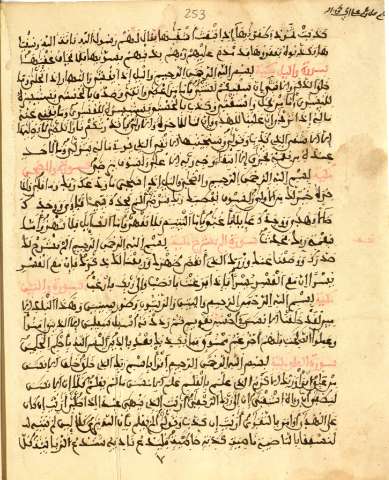 253
كذبت ثمود بطغويها إذ انبعث أشقيها فقال لهم رسول الله ناقة الله وسقيها
فكذبوه فعقروها فدمدم عليهم ربهم بذنبهم فسويها فلا يخاف عقبيها
سورة واليل مكية بسم الله الرحمن الرحيم واليل إذا يغشى والنهار إذا تجلى وما
خلق الذكر والأنثى إن سعيكم لشتى فأما من أعطى واتقى وصدق بالحسنى فسنيسره
لليسرى وأما من بخل واستغنى وكذب بالحسنى فسنيسره للعسرى وما يغني عنه
ماله إذا تردى إن علينا للهدى وإن لنا للآخرة والأولى فأنذرتكم نارا تلظى لا يصليها
إلا الأشقى الذي كذب وتولى وسيجنبها الأتقى الذي يوتي ماله يتزكى وما لأحد
عنده من نعمة تجزى إلا ابتغاء وجه ربه الأعلى ولسوف يرضى سورة والضحى
مكية بسم الله الرحمن الرحيم والضحى واليل إذا سجى ما ودعك ربك وما قلى وللآ
خرة خير لك من الأولى ولسوف يعطيك ربك فترضى ألم يجدك يتيما فآوى ووجدك
ضالا فهدى ووجدك عائلا فأغنى فأما اليتيم فلا تقهر وأما السائل فلا تنهر وأما
بنعمة ربك فحدث سورة ألم نشرح مكية بسم الله الرحمن الرحيم ألم نشرح لك
صدرك ووضعنا عنك وزرك الذي أنقض ظهرك ورفعنا لك ذكرك فإن مع العسر
يسرا إن مع العسر يسرا فإذا فرغت فانصب وإلى ربك فارغب سورة والتين
مكية بسم الله الرحمن الرحيم والتين والزيتون وطور سينين وهذا البلد الا
مين لقد خلقنا الانسن في أحسن تقويم ثم رددنه أسفل سفلين إلا الذين ءامنوا
وعملوا الصلحت فلهم أجر غير ممنون فما يكذبك بعد بالدين أليس الله بأحكم الحكمين
بسم الله الرحمن الرحيم اقرأ باسم ربك الذي خلق خلق الانسن
من علق اقرأ وربك الأكرم الذي علم بالقلم علم الانسن ما لم يعلم كلا إن الانسن
ليطغى أن رءاه استغنى إن إلى ربك الرجعى أرأيت الذي ينهى عبدا إذا صلى أرأيت إن كان
على الهدى أو أمر بالتقوى أرأيت إن كذب وتولى ألم يعلم بأن الله يرى كلا لئن لم ينته
لنسفعا بالناصية ناصية كذبة خاطئة فليدع ناديه سندع الزبانية كلا